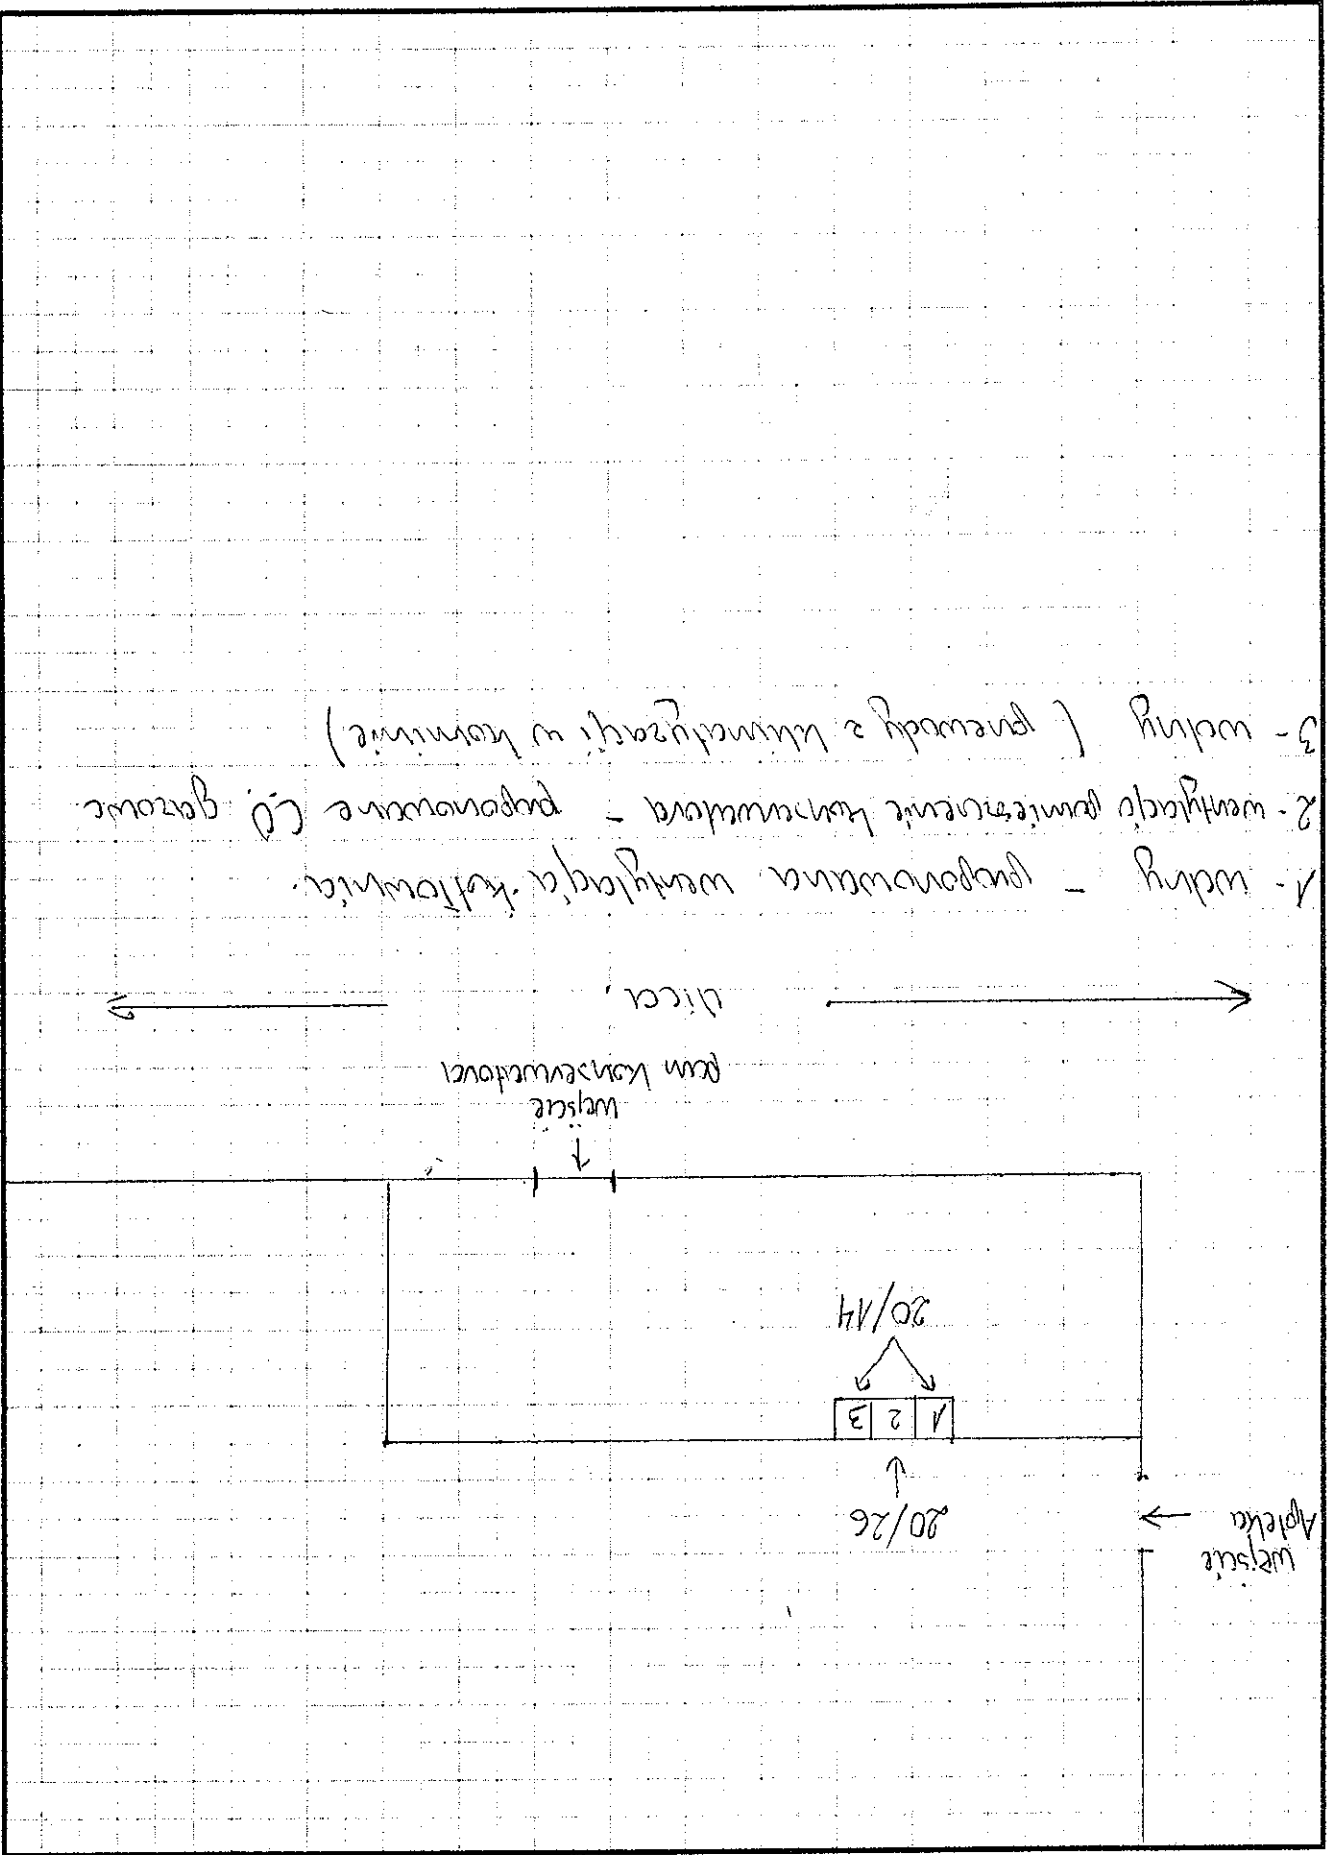 wejście
Apteka
20/26
1 2 3
20/14
wejście
pom konserwatora
ulica
1 - wolny - proponowana wentylacja kotłownia.
2 - wentylacja pomieszczenie konserwatora - proponowane C.O. gazowe
3 - wolny ( przewody z klimatyzacji w kominie )